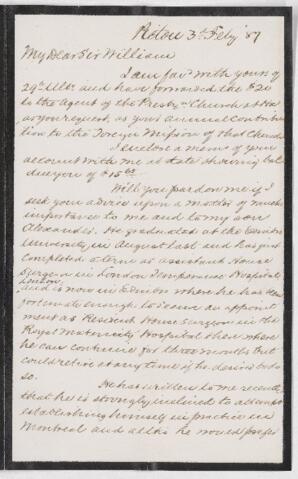 Pictou 3d Feby '87
My Dear Sir William
I am fav'd with yours of
29th Ulto. and have forwarded the $20
to the Agent of the Presbyn Church at Hx
as you request, as your annual contribu-
tion to the Foreign Mission of that Church
I enclose a mem of your
account with me at date showing bal.
due you of $15
Will you pardon me if I
seek your advice upon a matter of much
importance to me and to my son
Alexander. He graduated at the Edinbro
University in August last and has just
completed a term as assistant House
Surgeon in London Temperance Hospital,
London,
and is now in Edinbro where he has been
fortunate enough to secure an appoint
ment as Resident House Surgeon in the
Royal Maternity Hospital there where
he can continue for three months but
could retire at any time if he desires to do
so.
He has written to me recently
that he is strongly inclined to attempt
establishing himself in practice in
Montreal and altho he would prefer